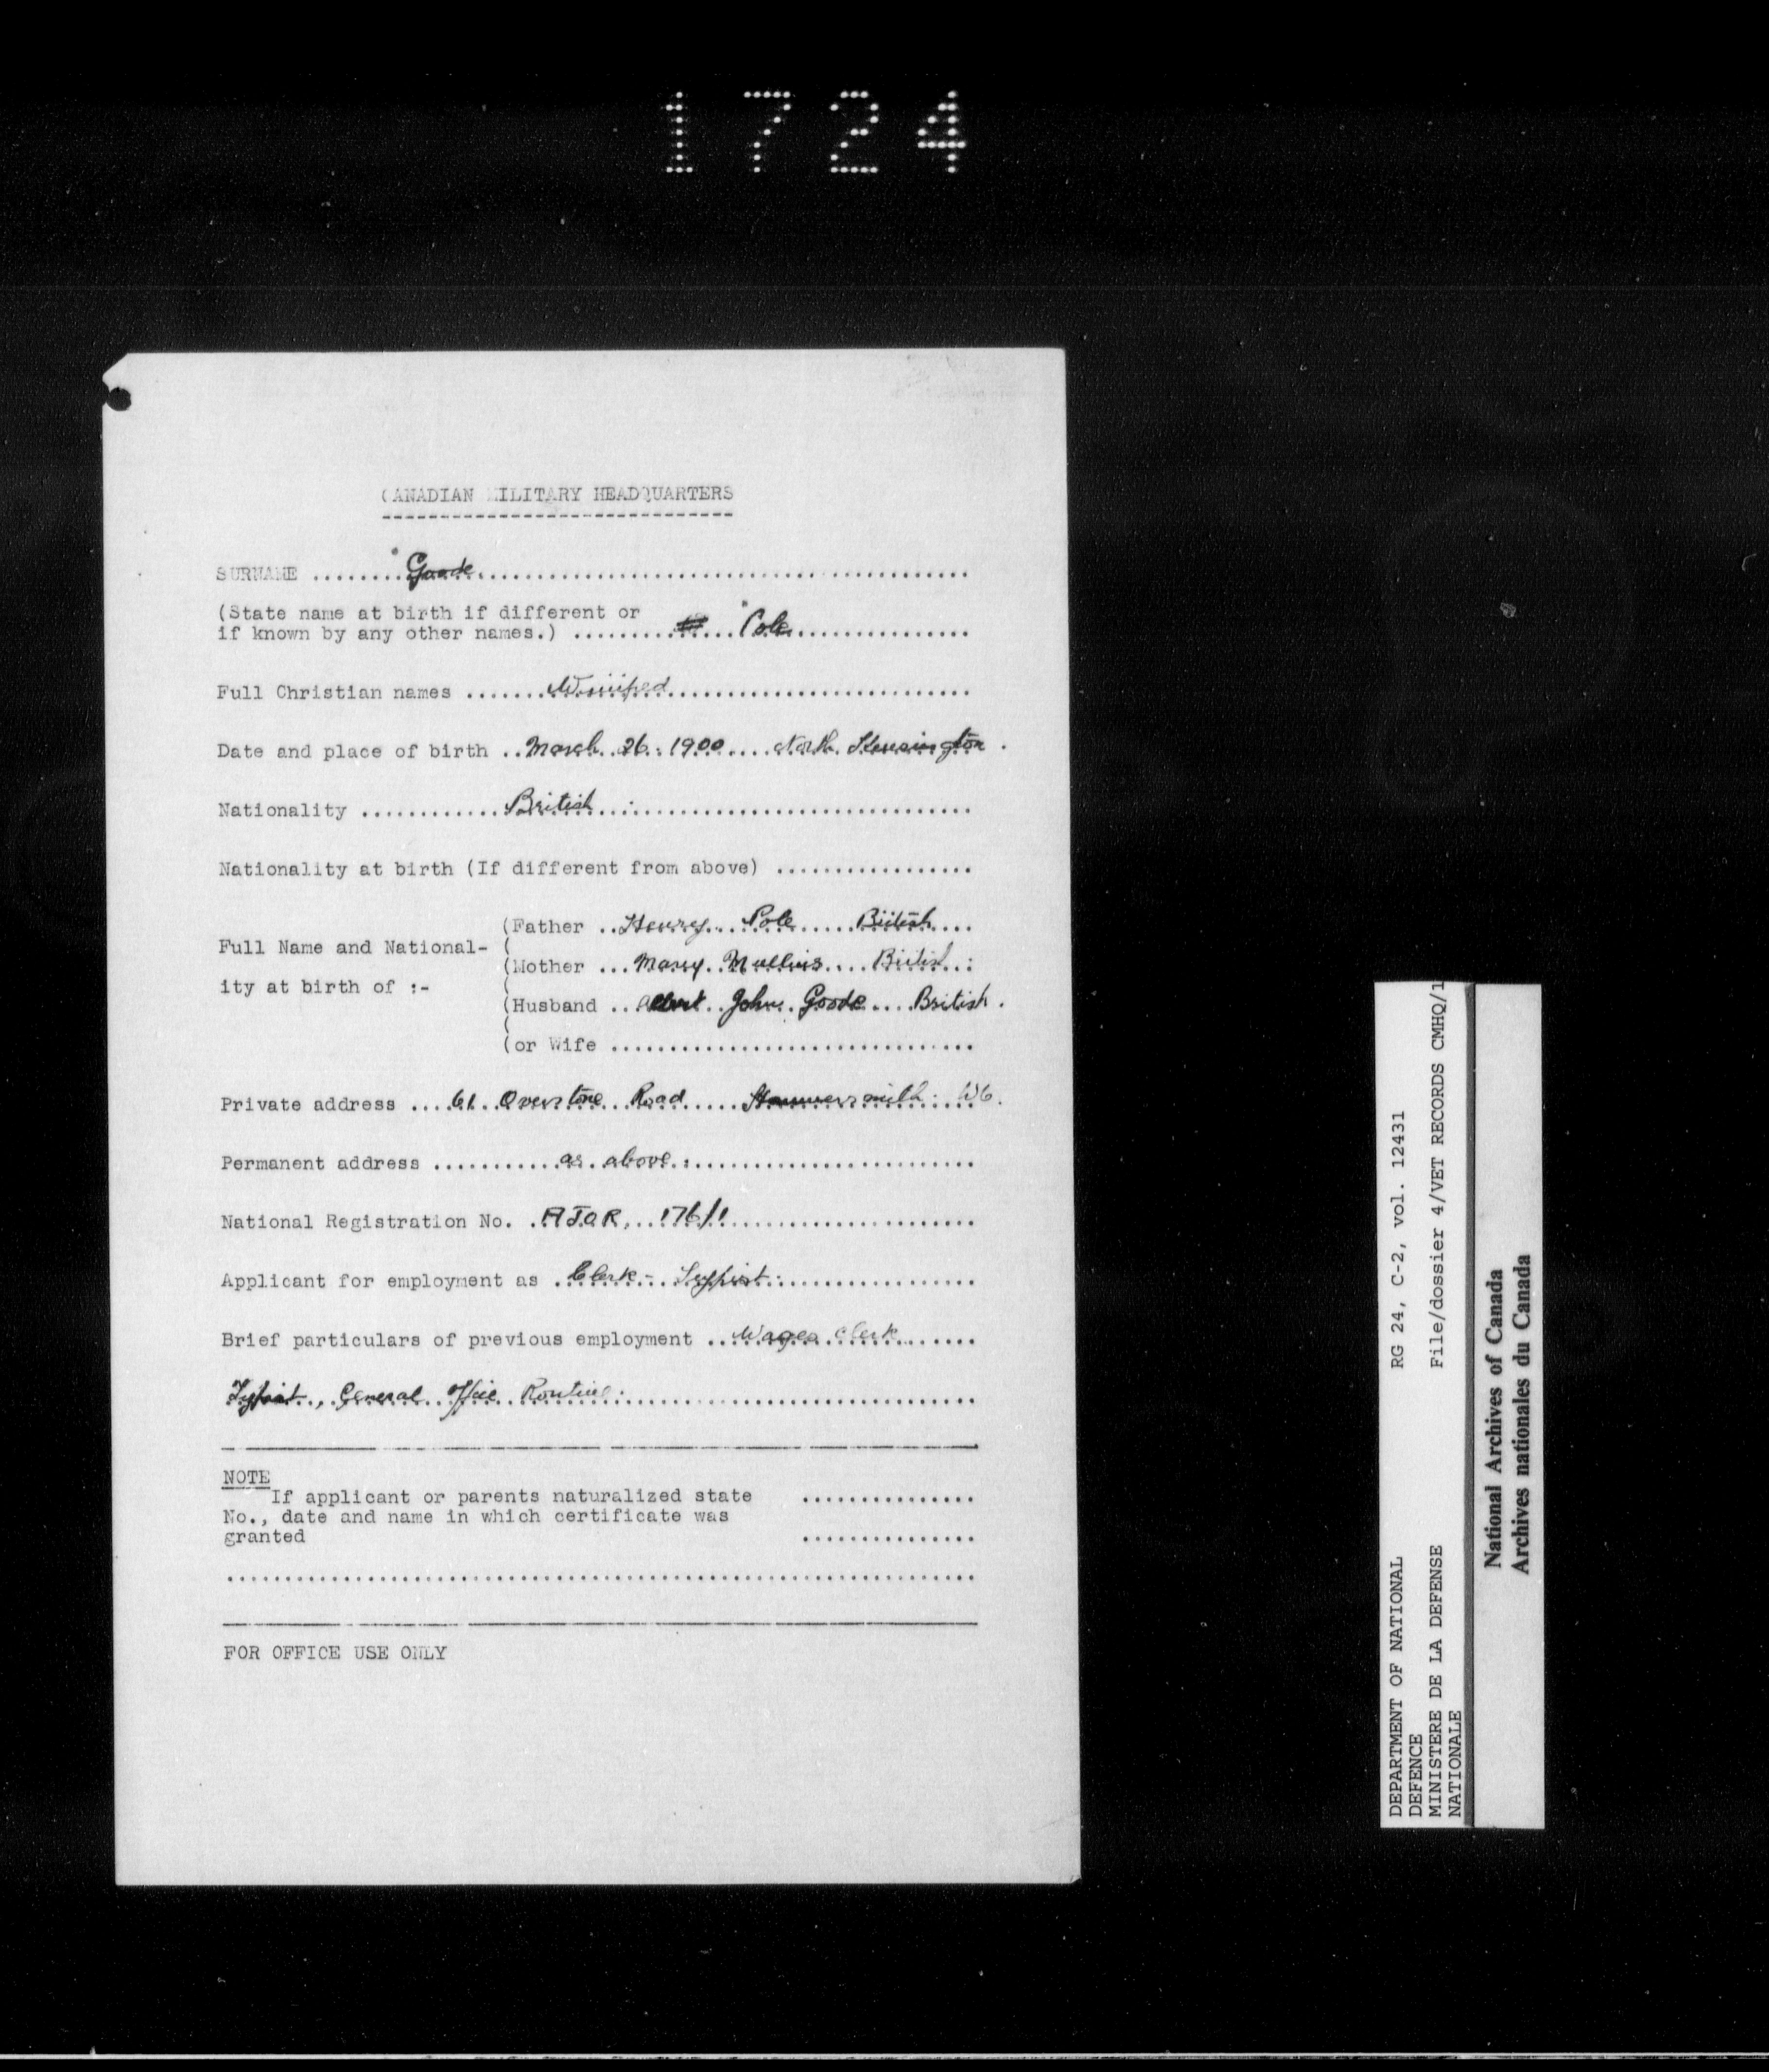 1724
CANADIAN MILITARY HEADQUARTERS
SURNAME ........Goode..........................................
(State name at birth if different or
if known by any other names.) ............... Cole................
Full Christian names .......Winifred..........................
Date and place of birth ..March 26. 1900.....North Kensington.
Nationality ............British...................................
Nationality at birth (If different from above) .................
(Father ..Henry... Cole......British....
Full Name and National- (
(Mother ...Mary. Mullins....British..
ity at birth of :- (
(Husband ..Albert. John. Goode....British.
(
(or Wife ...............................
Private address ....61. Overstone Road......Hammersmith. W6.
Permanent address ...........as above...........................
National Registration No. .AJOR, 176/1.....................
Applicant for employment as .Clerk - Typist...................
Brief particulars of previous employment ..Wages Clerk.......
Typist, General Office Routine.................................
NOTE
If applicant or parents naturalized state ...............
No., date and name in which certificate was
granted ...............
................................................................
FOR OFFICE USE ONLY
DEPARTMENT OF NATIONAL RG 24, C-2, vol. 12431
DEFENCE
MINISTERE DE LA DEFENSE File/dossier 4/VET RECORDS CMHQ/1
NATIONALE
National Archives of Canada
Archives nationales du Canada